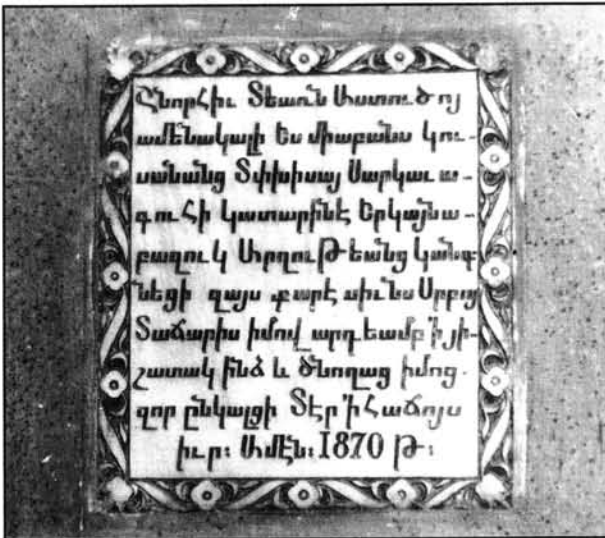 Շնորհիւ Տեառն Աստուծոյ
ամենակալի Ես միաբանս կու-
սանանց Տփխիսայ Սարկաւա-
գուհի Կատարինէ Երկայնա-
բազուկ Արղութեանց կանգ
նեցի զայս քարէ սիւնս Սրբոյ
Տաճարիս իմով արդեամբ ՚ի յի-
շատակ ինձ և ծնողաց իմոց.
զոր ընկալցի Տէր ՚ի հաճոյս
իւր։ Ամէն։ 1870 թ։